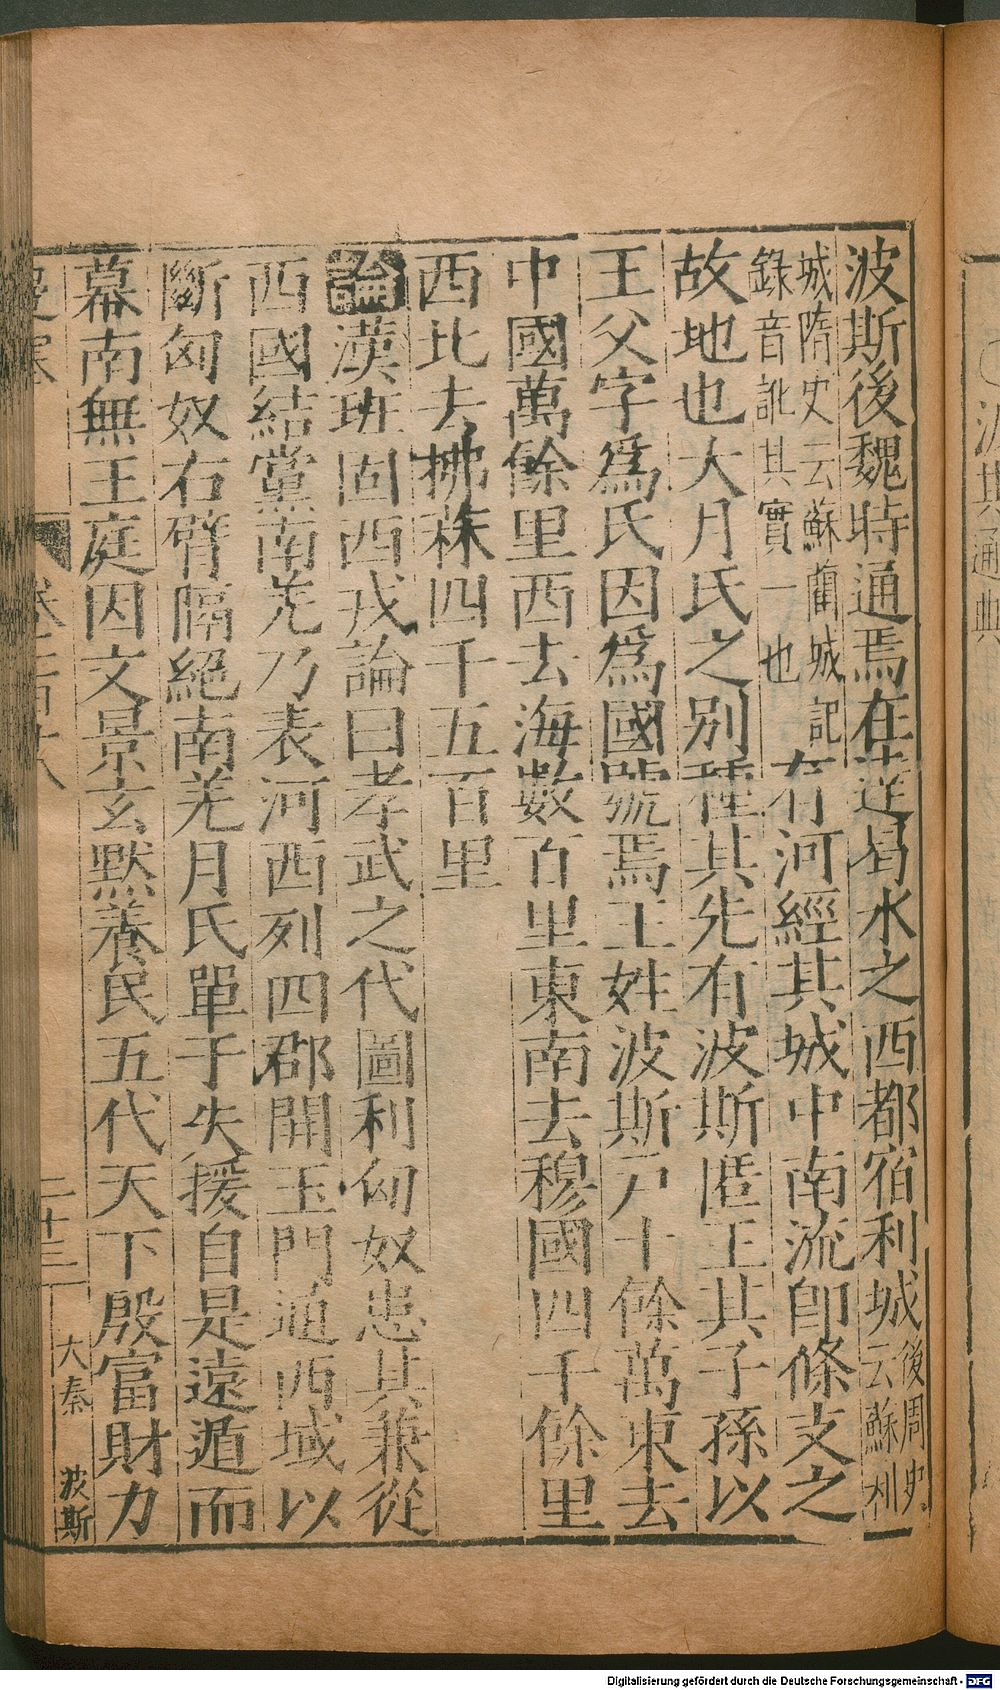 波斯後魏時通焉在達曷水之西都宿利城後周史云蘇利
城隋史云蘇藺城記錄音訛其實一也有河經其城中南流卽條支之
故地也大月氏之別種其先有波斯匿王其子孫以
王父字爲氏因爲國號焉王姓波斯戶十餘萬東去
中國萬餘里西去海數百里東南去穆國四千餘里
西北去拂菻四千五百里
論漢班固西戎論曰孝武之代圖利匈奴患其兼從
西國結黨南羌乃表河西列四郡開玉門通西域以
斷匈奴右臂隔絕南羌月氏單于失援自是遠遁而
幕南無王庭因文景玄默養民五代天下殷富財力
二十三
大秦 波斯
通典
Digitalisierung gefördert durch die Deutsche Forschungsgemeinschaft - DFG